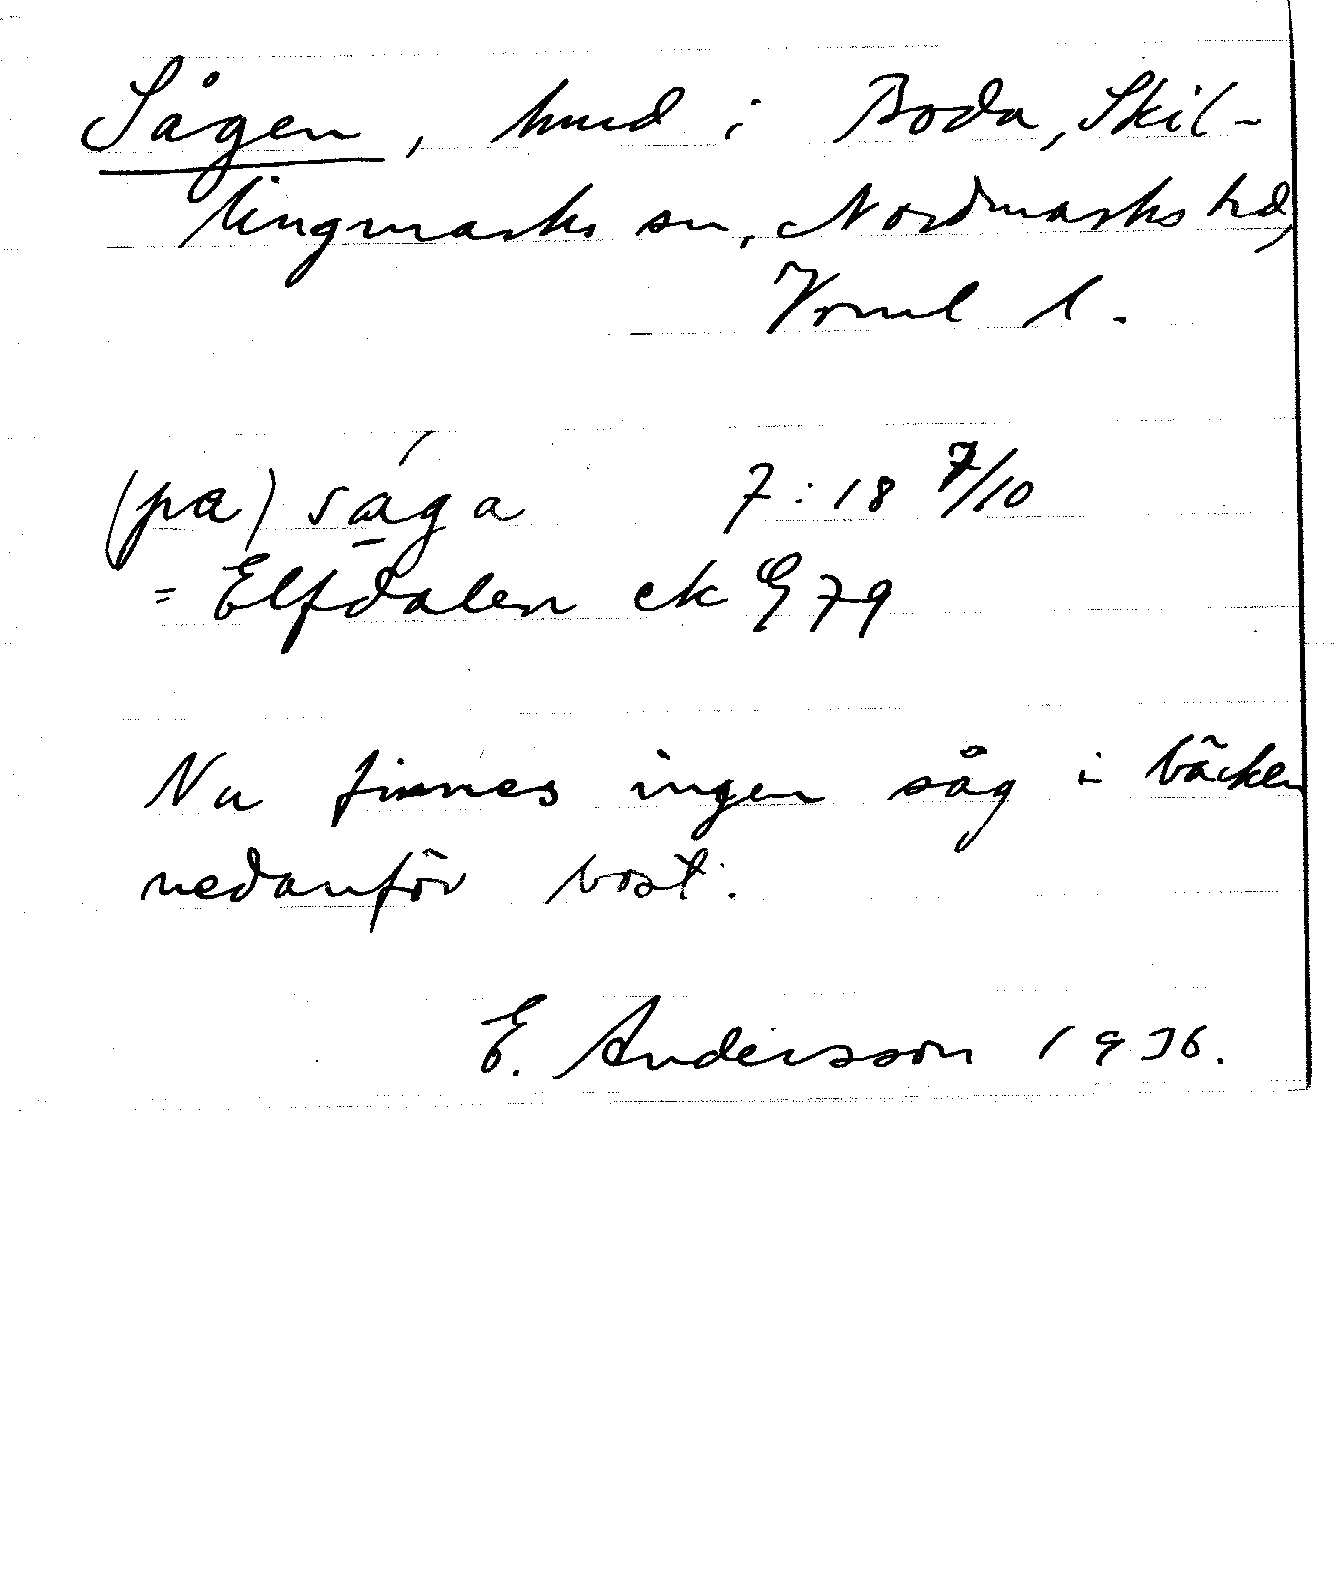 Sågen, hmd i Boda, Skil-
lingmarks sn, Nordmarks hd,
Vrml l.
(pa) sága 7:18 7/10
= Elfdalen ek E 79
Nu finnes ingen såg i bäcken
nedanför bost.
E. Andersson 1936.